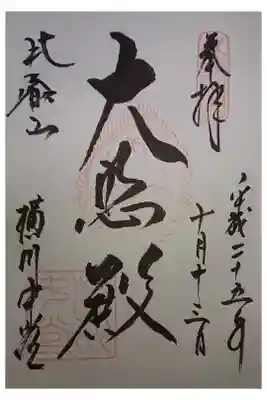 奉拝
平成二十五年
十月十三日
大悲殿
比叡山
横川中堂